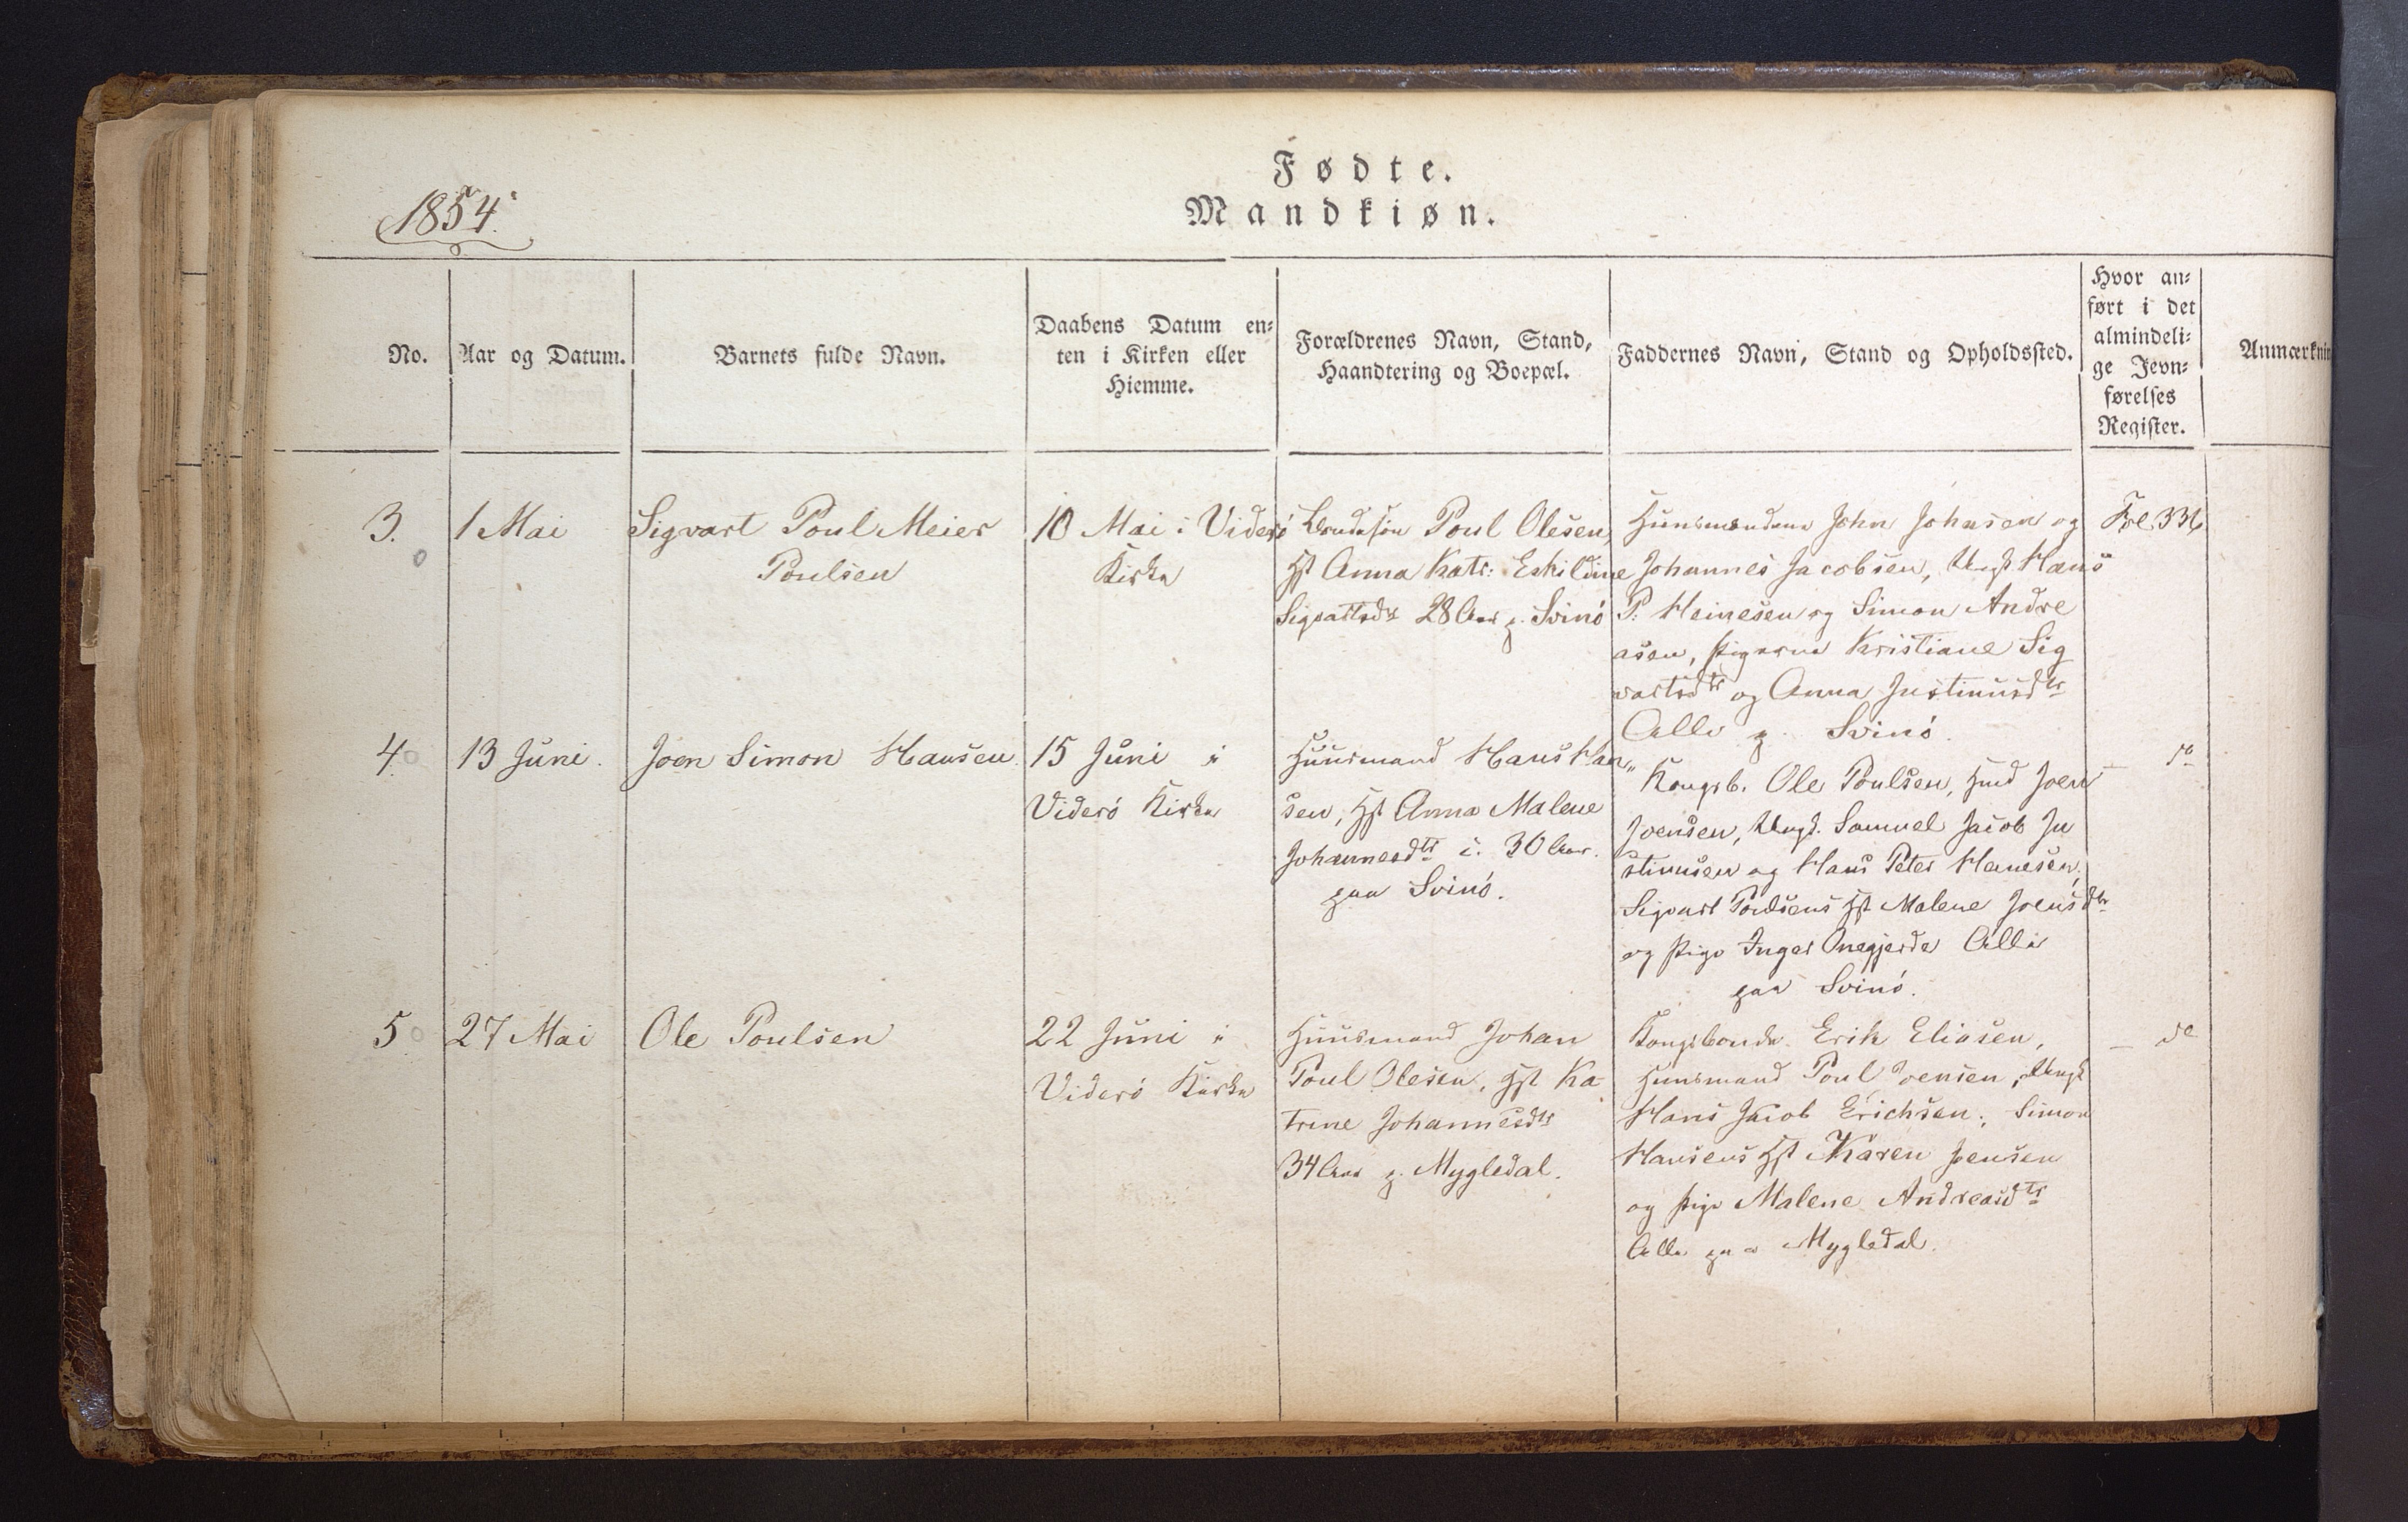 Fødte.
Mandkiøn.
1854.
No.
Aar og Datum.
Barnets fulde Navn.
Daabens Datum en-
ten i Kirken eller
Hiemme.
Forældrenes Navn, Stand,
Haandtering og Boepæl.
Faddernes Navn, Stand og Opholdssted.
Hvor an-
ført i det
almindeli-
ge Jevn-
førelses
Register.
Anmærknin
3.
1 Mai
Sigvart Poul Meier
Poulsen
10 Mai i Viderö
Kirke
Bondesön Poul Olesen,
Hst Anna Katr: Eskildine
Sigvartsdtr 28 Aar p. Svinö
Huusmændene John Johnsen og
Johannes Jacobsen, Ungk Hans
P: Heinesen og Simon Andre
asen, Pigerne Kristiane Sig
vartsdtr og Anna Justinusdtr
Alle p. Svinö.
Fol 336
4.
13 Juni.
Joen Simon Hansen
15 Juni i
Viderö Kirke
Huusmand Hans Han„
sen, Hst Anna Malene
Johannesdtr i. 30 Aar.
paa Svinö.
Kongsb. Ole Poulsen, Hmd Joen
Joensen, Ungk. Samuel Jacob Ju
stinusen og Hans Peter Heinesen,
Sigvart Poulsens Hst Malene Joensdtr
og Pige Inger Alle
paa Svinö.
— do
5.
27 Mai
Ole Poulsen
22 Juni i
Viderö Kirke
Huusmand Johan
Poul Olesen, Hst Ka
trine Johannesdtr
34 Aar p. Mygledal.
Kongsbonde Erik Eliasen,
Huusmand Poul Joensen, Ungk
Hans Jacob Erichsen, Simon
Hansens Hst Karen Jensen
og Pige Malene Andreasdtr
Alle paa Mygledal.
— do